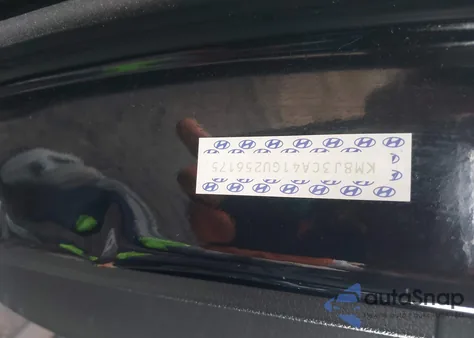 KM8J3CA41GU256175
autoSnap